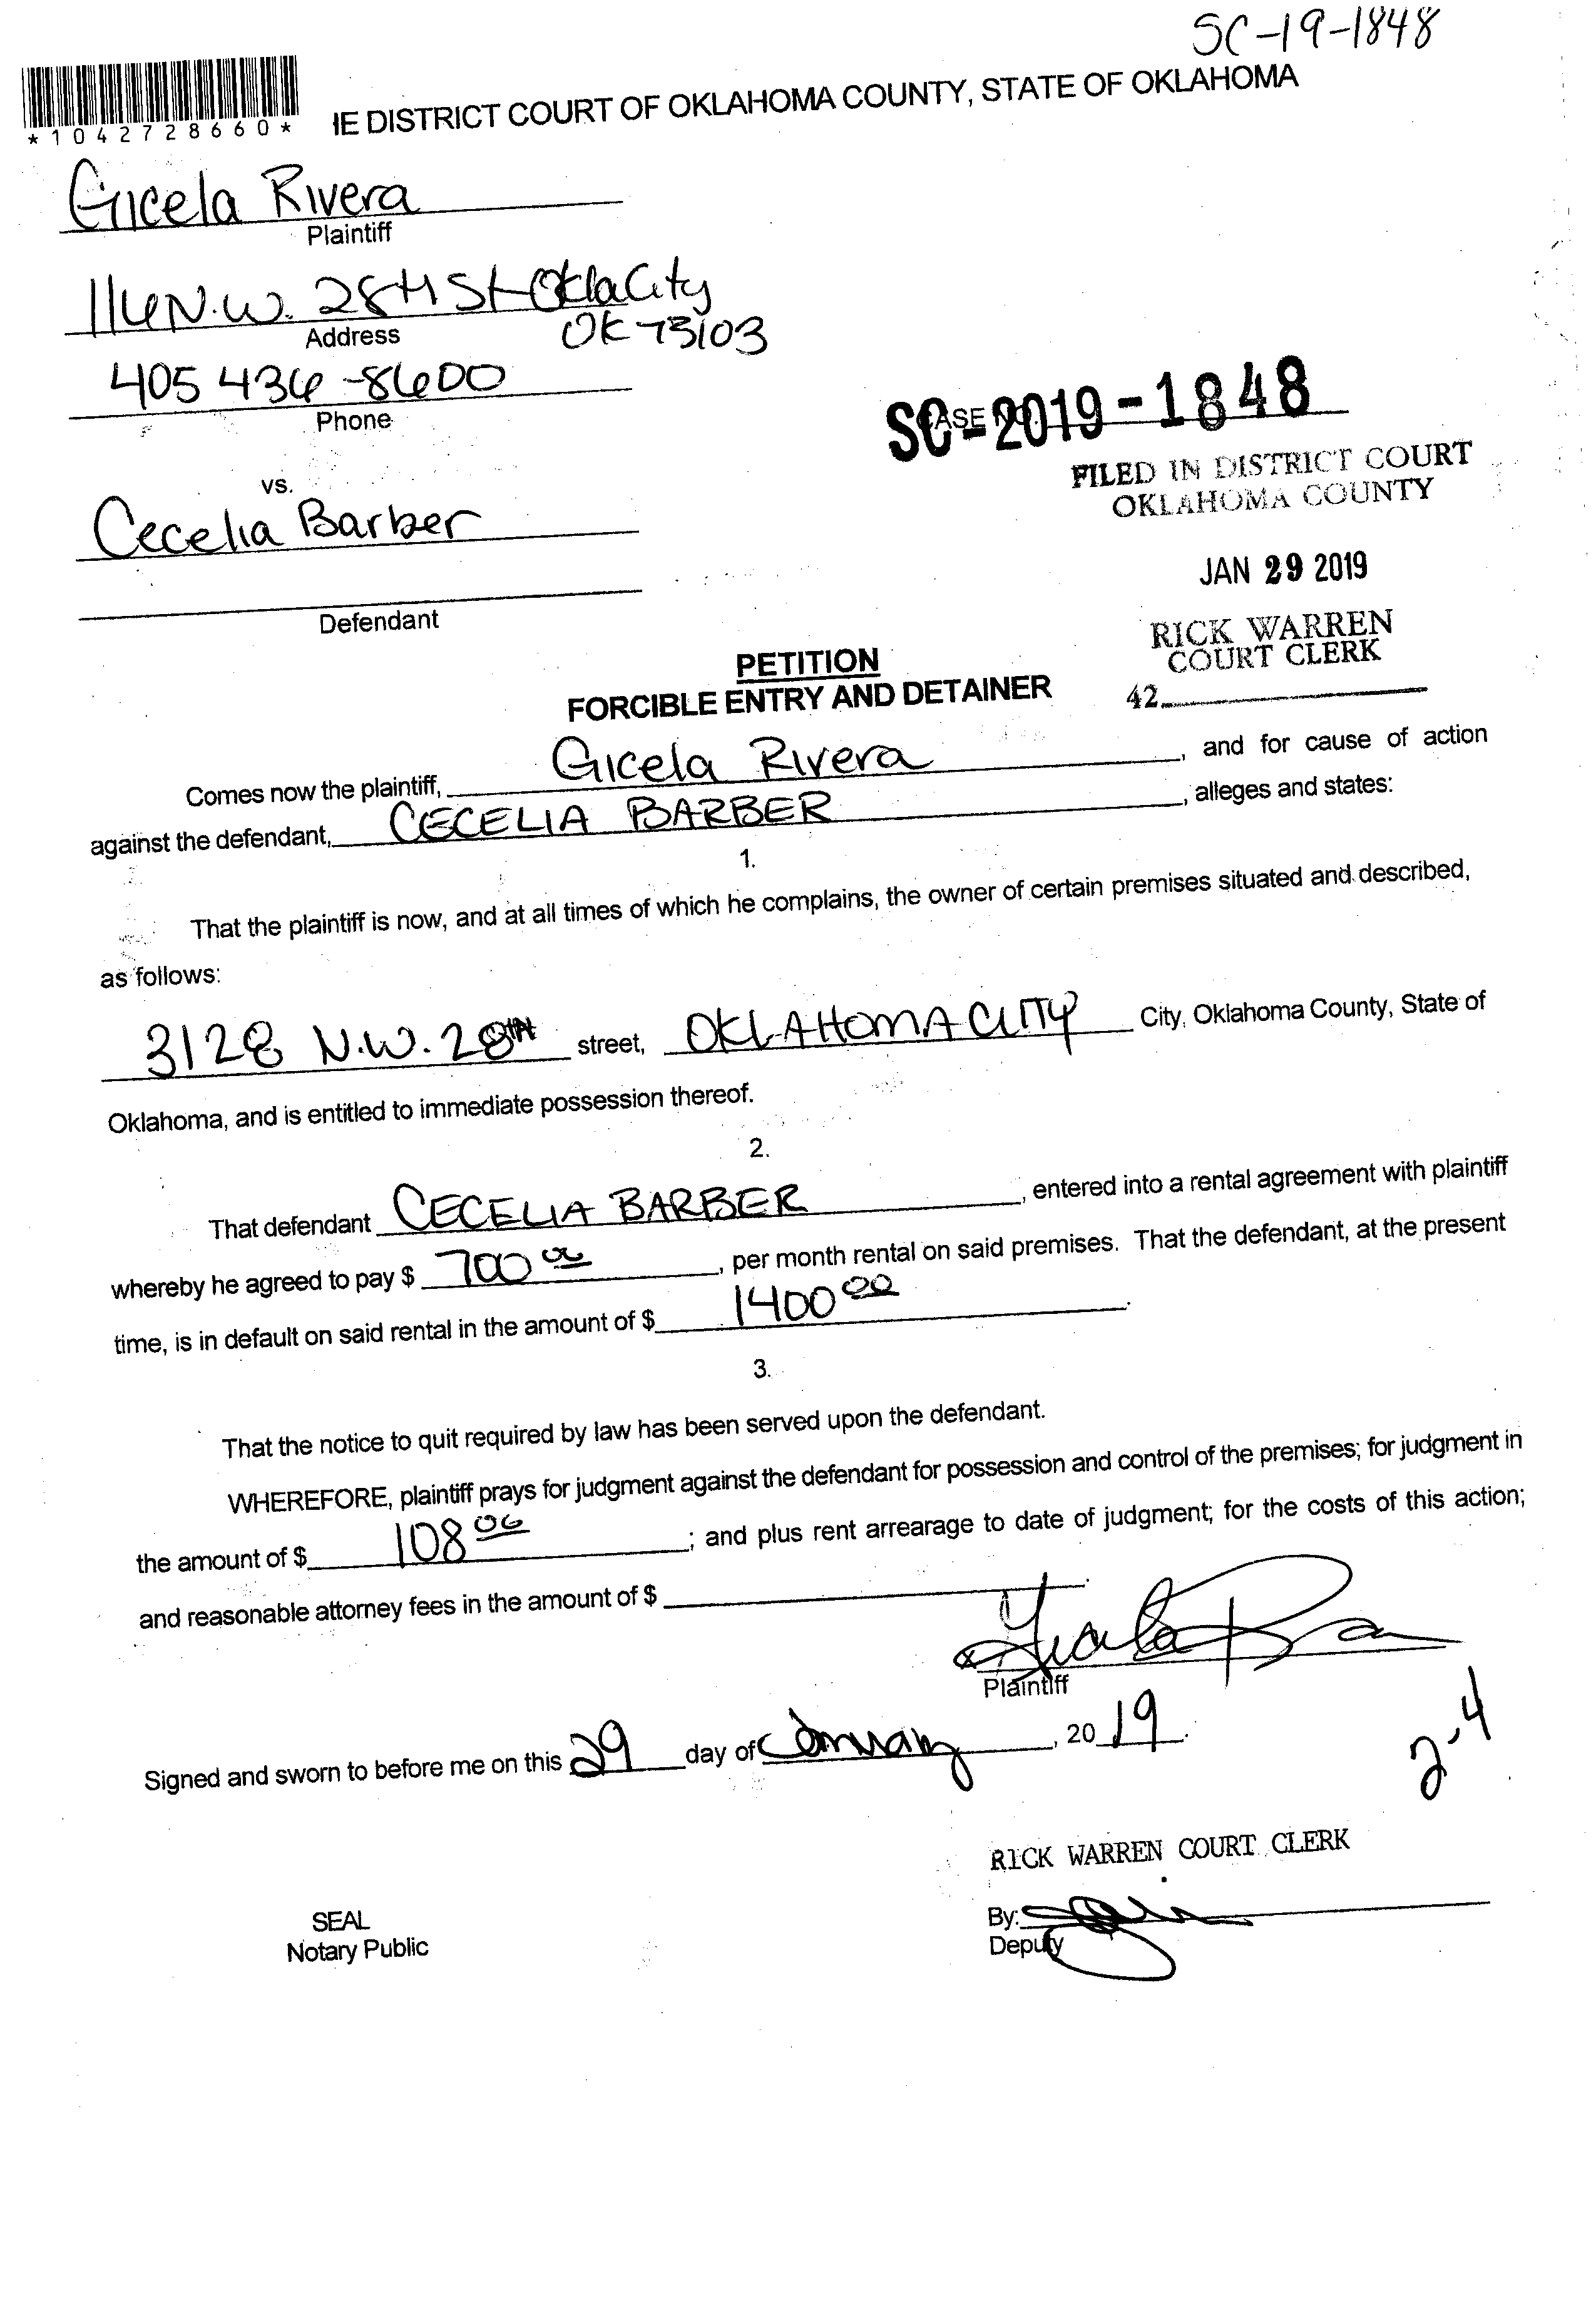 SC-19-1848
*1042728660*
IE DISTRICT COURT OF OKLAHOMA COUNTY, STATE OF OKLAHOMA
Gicela Rivera
Plaintiff
116 N.W. 28TH St Okla City
Address
OK 73103
405 436-8600
Phone
SC-2019-1848
FILED IN DISTRICT COURT
OKLAHOMA COUNTY
vs.
Cecelia Barber
JAN 29 2019
Defendant
RICK WARREN
COURT CLERK
42
PETITION
FORCIBLE ENTRY AND DETAINER
Comes now the plaintiff, Gicela Rivera, and for cause of action
against the defendant, CECELIA BARBER, alleges and states:
1.
That the plaintiff is now, and at all times of which he complains, the owner of certain premises situated and described,
as follows:
3128 N.W. 28TH street, OKLAHOMA CITY City, Oklahoma County, State of
Oklahoma, and is entitled to immediate possession thereof.
2.
That defendant CECELIA BARBER, entered into a rental agreement with plaintiff
whereby he agreed to pay $ 700 00, per month rental on said premises. That the defendant, at the present
time, is in default on said rental in the amount of $ 1400 00.
3.
That the notice to quit required by law has been served upon the defendant.
WHEREFORE, plaintiff prays for judgment against the defendant for possession and control of the premises; for judgment in
the amount of $ 108 00; and plus rent arrearage to date of judgment; for the costs of this action;
and reasonable attorney fees in the amount of $
Plaintiff
Signed and sworn to before me on this 29 day of January, 2019.
2-4
RICK WARREN COURT CLERK
SEAL
Notary Public
By:
Deputy